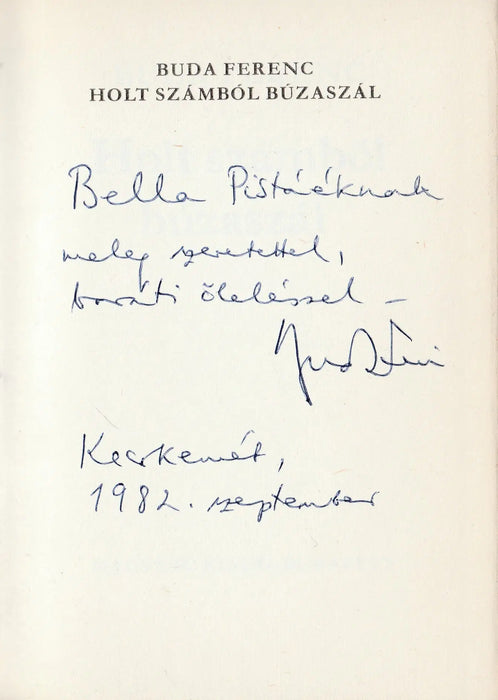 BUDA FERENC
HOLT SZÁMBÓL BÚZASZÁL
Bella Pistáéknak
meleg szeretettel,
baráti öleléssel –
Buda Feri
Kecskemét,
1982. szeptember